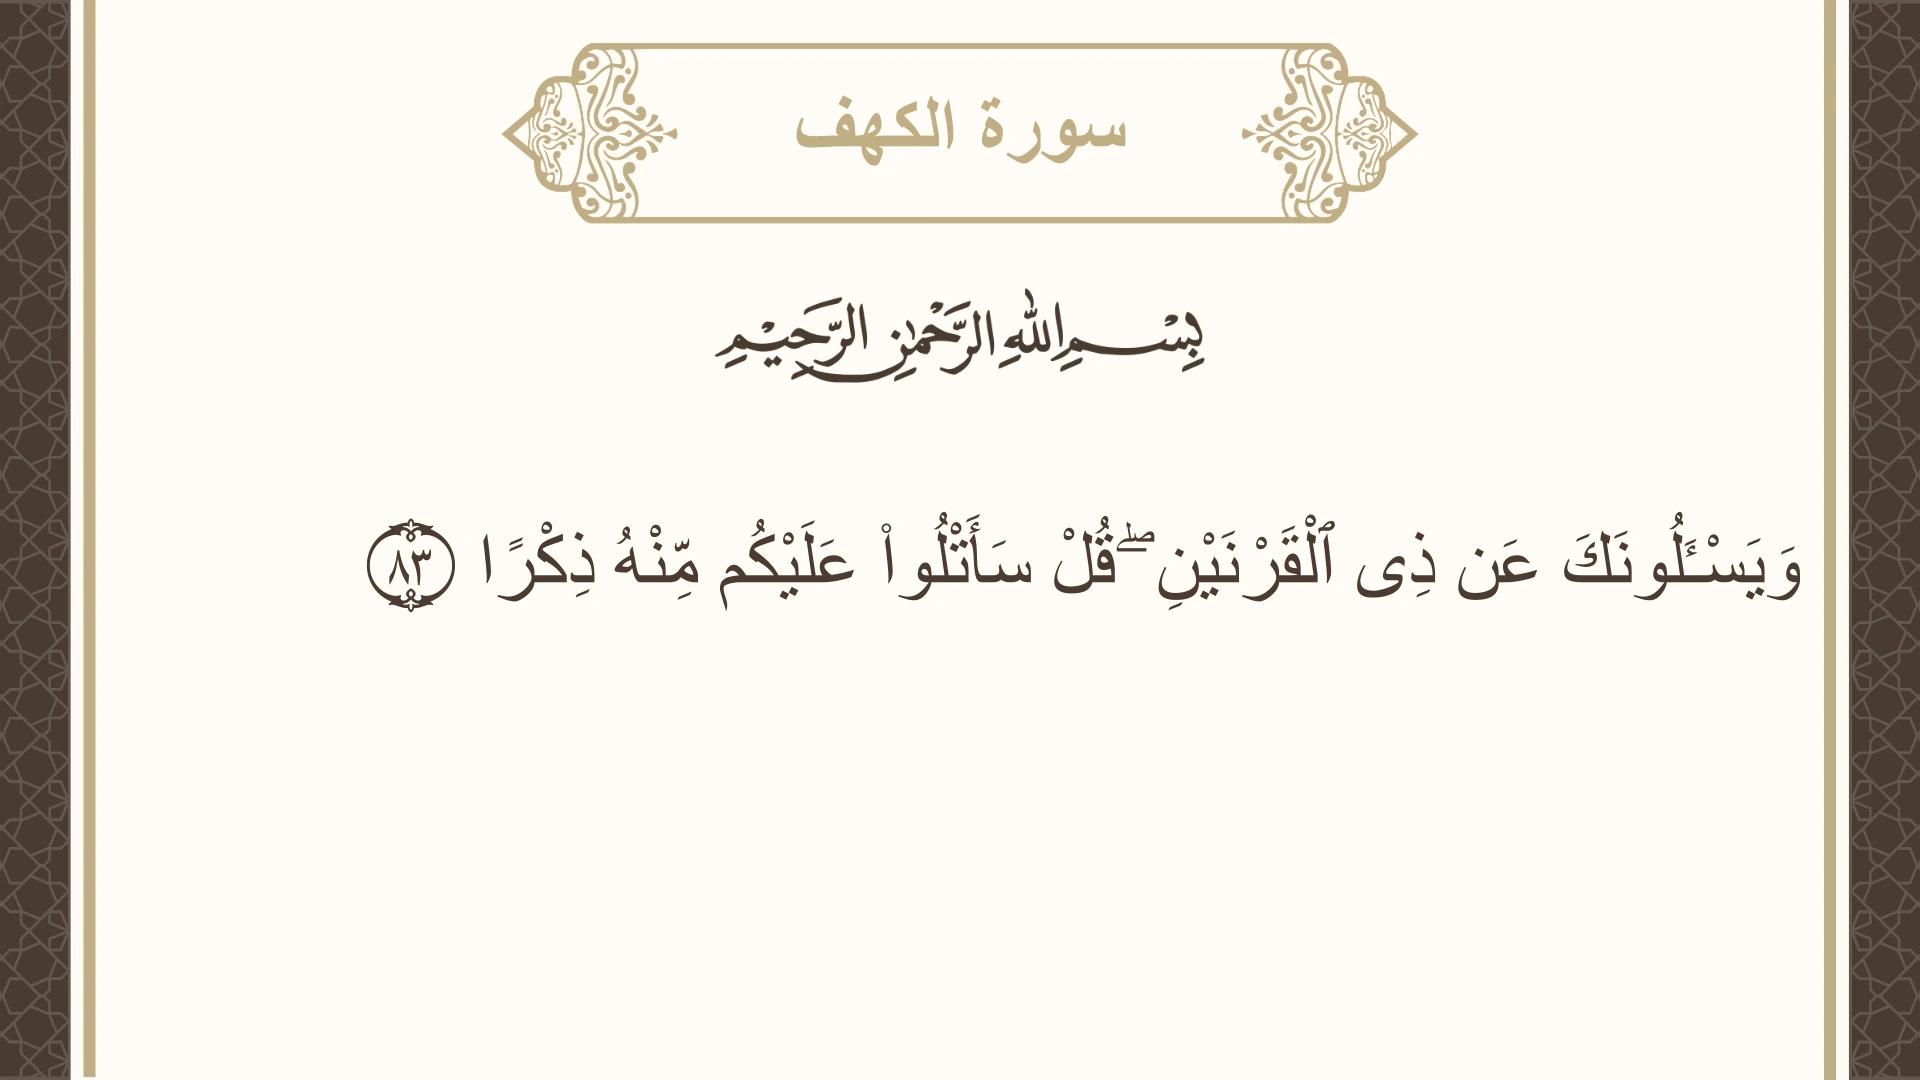 سورة الكهف
بِسْمِ اللهِ الرَّحْمٰنِ الرَّحِيْمِ
وَيَسْـَٔلُونَكَ عَن ذِى ٱلْقَرْنَيْنِ ۖ قُلْ سَأَتْلُوا۟ عَلَيْكُم مِّنْهُ ذِكْرًا ٨٣